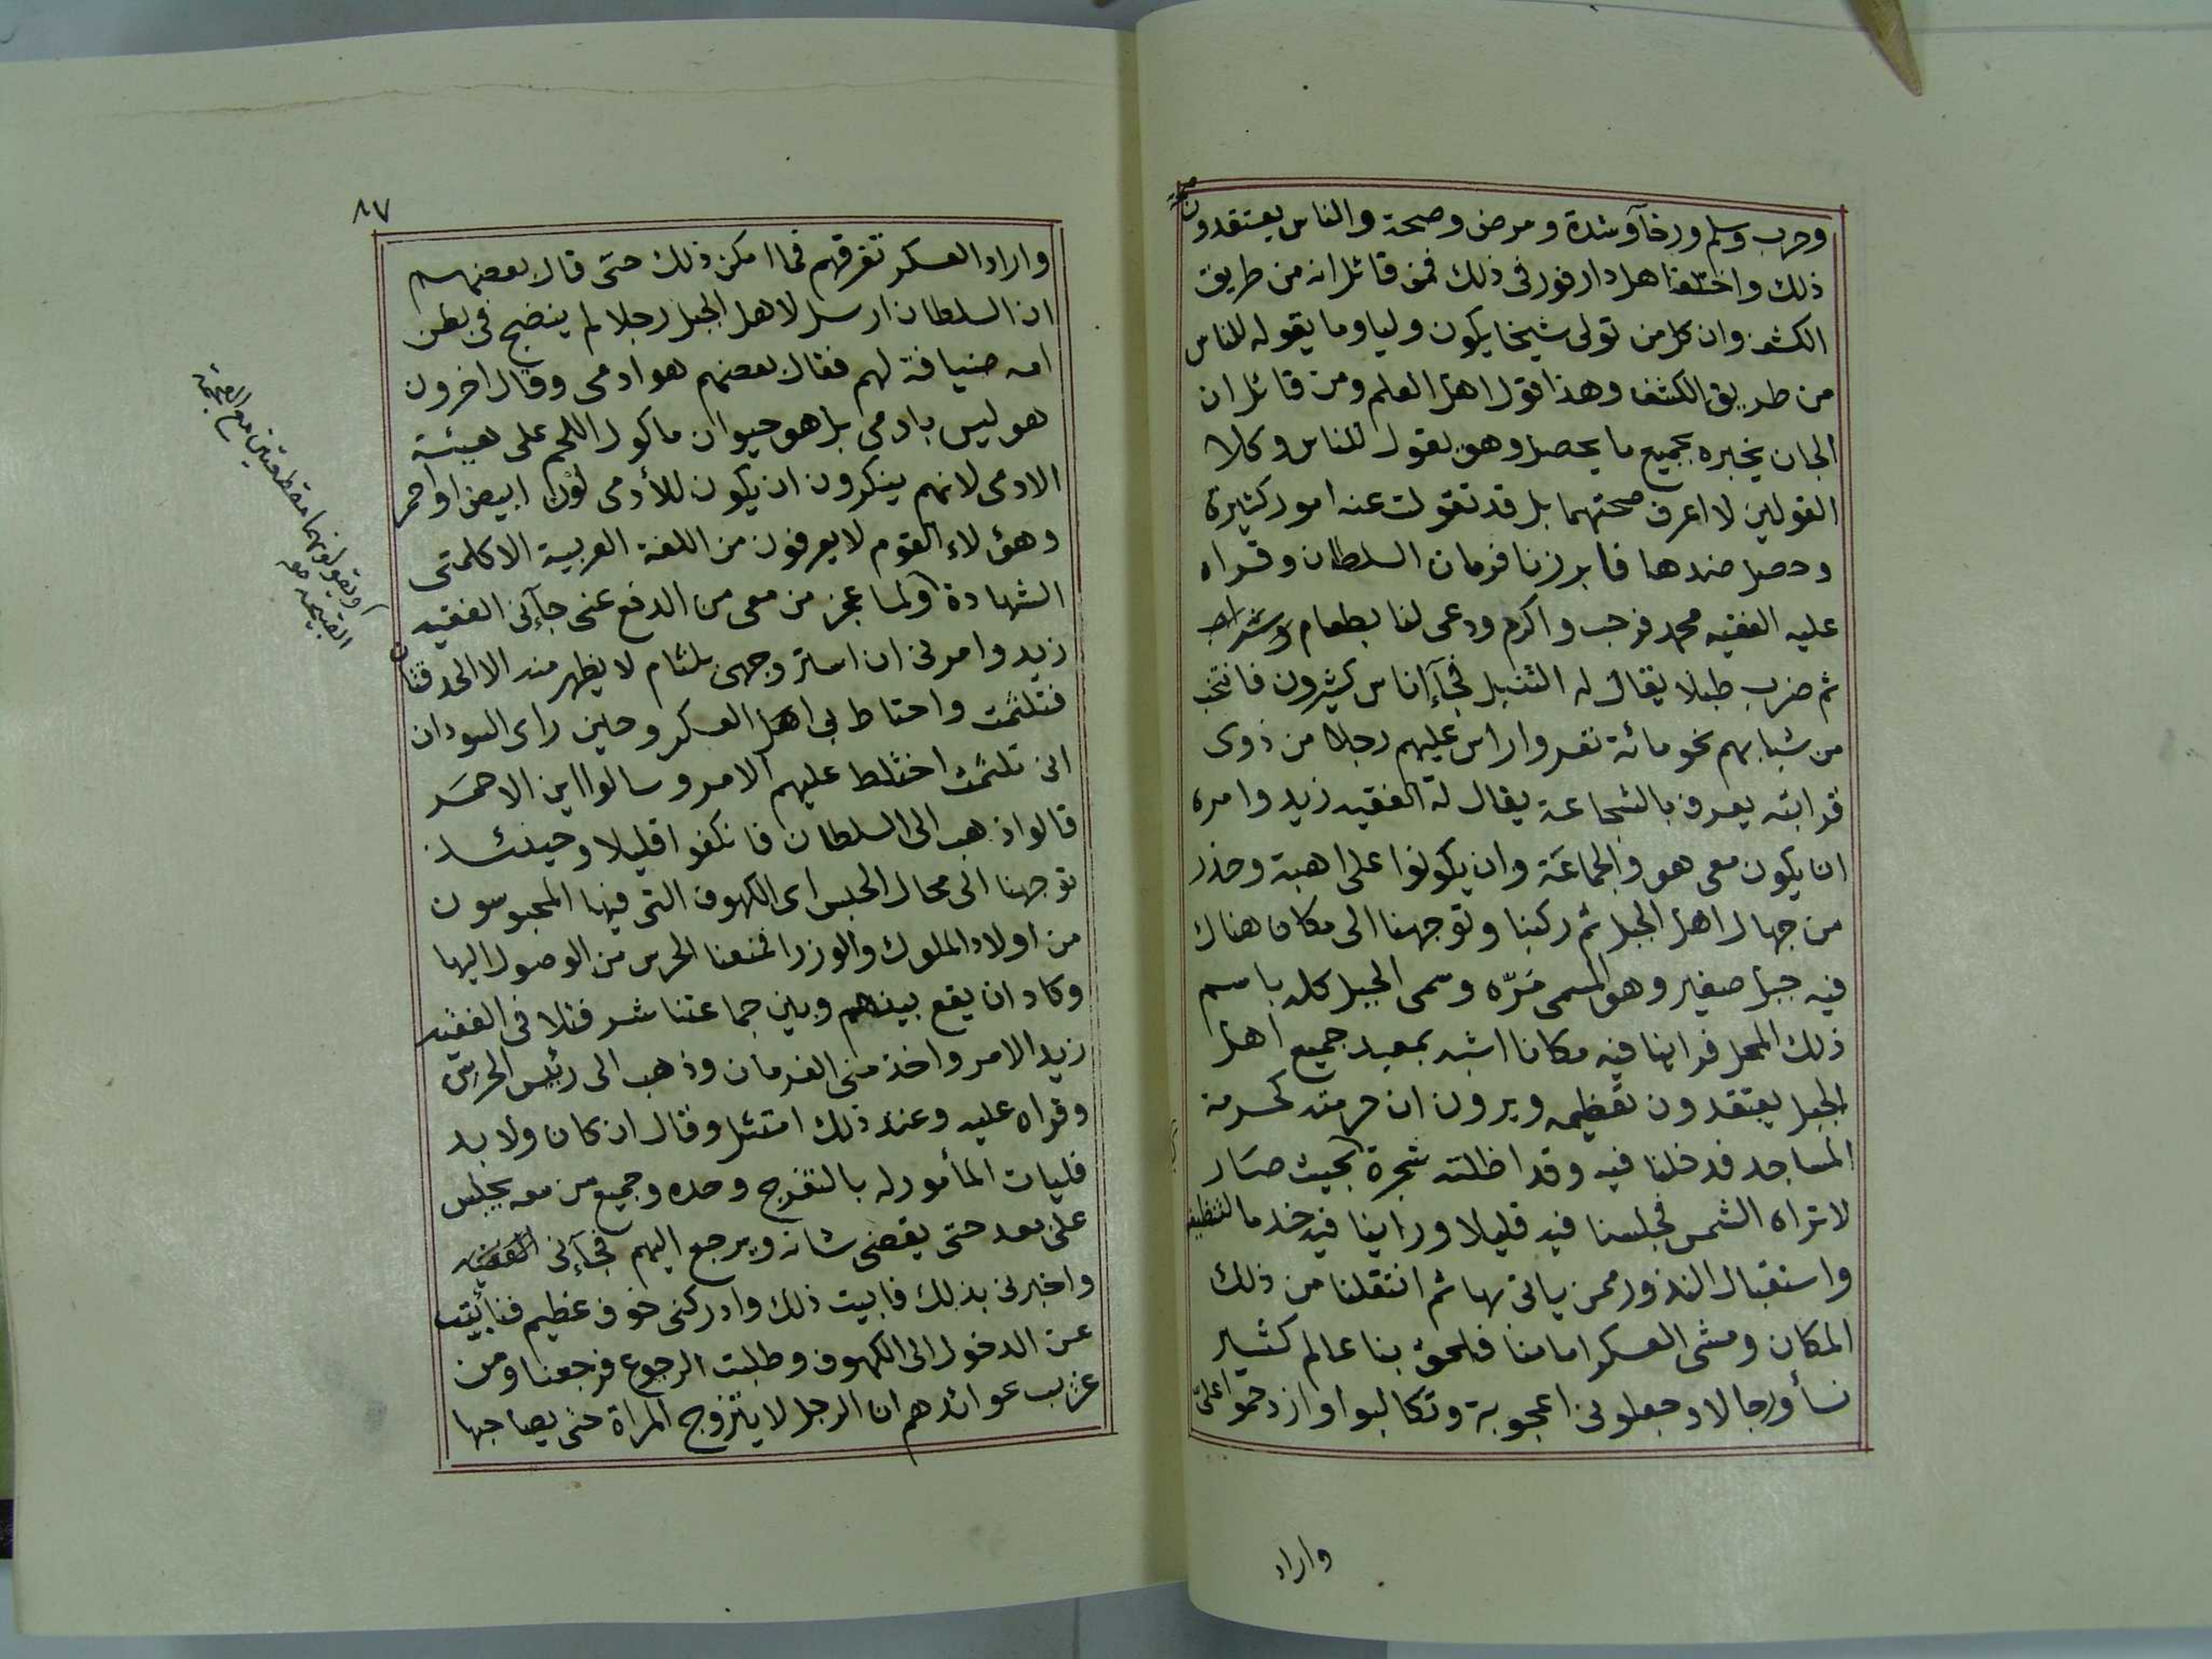 وحرب وسلم ورخآ وشدة ومرض وصحة والناس يعتقدون صحة
ذلك واختلف اهل دارفور فى ذلك فمن قائل انه من طريق
الكشف وان كل من تولى شيخا يكون وليا وما يقوله للناس
من طريق الكشف وهذا قول اهل العلم ومن قائل ان
الجان يخبره بجميع ما يحصل وهو يقول للناس وكلا
القولين لا اعرف صحتهما بل قد تقولت عنه امور كثيرة
وحصل ضدها فابرزنا فرمان السلطان وقراه
عليه الفقيه محمد فرحب واكرم ودعى لنا بطعام وشراب
ثم ضرب طبلا يقال له التنبل فجآ اناس كثيرون فانتخب
من شبابهم نحو مائة نفر واراس عليهم رجلا من ذوى
قرابته يعرف بالشجاعة يقال له الفقيه زيد وامره
ان يكون معى هو والجماعة وان يكونوا على اهبة وحذر
من جهال اهل الجبل ثم ركبنا وتوجهنا الى مكان هناك
فيه جبل صغير وهو المسمى مرّه وسمى الجبل كله باسم
ذلك المحل فراينا فيه مكانا اشبه بمعبد جميع اهل
الجبل يعتقدون تعظيمه ويرون ان حرمته كحرمة
المساجد فدخلنا فيه وقد اظلته شجرة بحيث صار
لا تراه الشمس فجلسنا فيه قليلا وراينا فيه خدما لتنظيفه
واستقبال النذور ممن ياتى بها ثم انتقلنا من ذلك
المكان ومشى العسكر امامنا فلحق بنا عالم كثير
نسأ ورجالا وجعلونى اعجوبة وتكالبوا وازدحموا علىّ
واراد
٨٧
واراد العسكر تفرقهم فما امكن ذلك حتى قال بعضهم
ان السلطان ارسل لاهل الجبل رجلا لم ينضج فى بطن
امه ضيافة لهم فقال بعضهم هو ادمى وقال اخرون
هو ليس بادمى بل هو حيوان ماكول اللحم على هيئة
الادمى لانهم ينكرون ان يكون للأدمى لون ابيض او احمر
وهؤلاء القوم لا يعرفون من اللغة العربية الا كلمتى
الشهادة ولما عجز من معى من الدفع عنى جآنى الفقيه
زيد وامرنى ان استر وجهى بلثام لا يظهر منه الا الحدقتان
فتلثمت واحتاط بى اهل العسكر وحين راى السودان
انى تلثمت اختلط عليهم الامر وسالوا اين الاحمر
قالوا ذهب الى السلطان فانكفوا قليلا وحينئذ
توجهنا الى محال الحبس اى الكهوف التى فيها المحبوسون
من اولاد الملوك والوزرا فمنعنا الحرس من الوصول اليها
وكاد ان يقع بينهم وبين جماعتنا شر فتلافى الفقيه
زيد الامر واخذ منى الفرمان وذهب الى رئيس الحرس
وقراه عليه وعند ذلك امتثل وقال ان كان ولا بد
فليات المأمور له بالتفرج وحده وجميع من معه يجلس
على بعد حتى يقضى شانه ويرجع اليهم فجآنى الفقيه
واخبرنى بذلك فابيت ذلك وادركنى خوف عظيم فتأبيت
عن الدخول الى الكهوف وطلبت الرجوع فرجعنا ومن
غريب عوائدهم ان الرجل لا يتزوج المراة حتى يصاحبها
ويقولونهما مقطعتين مع العجمة